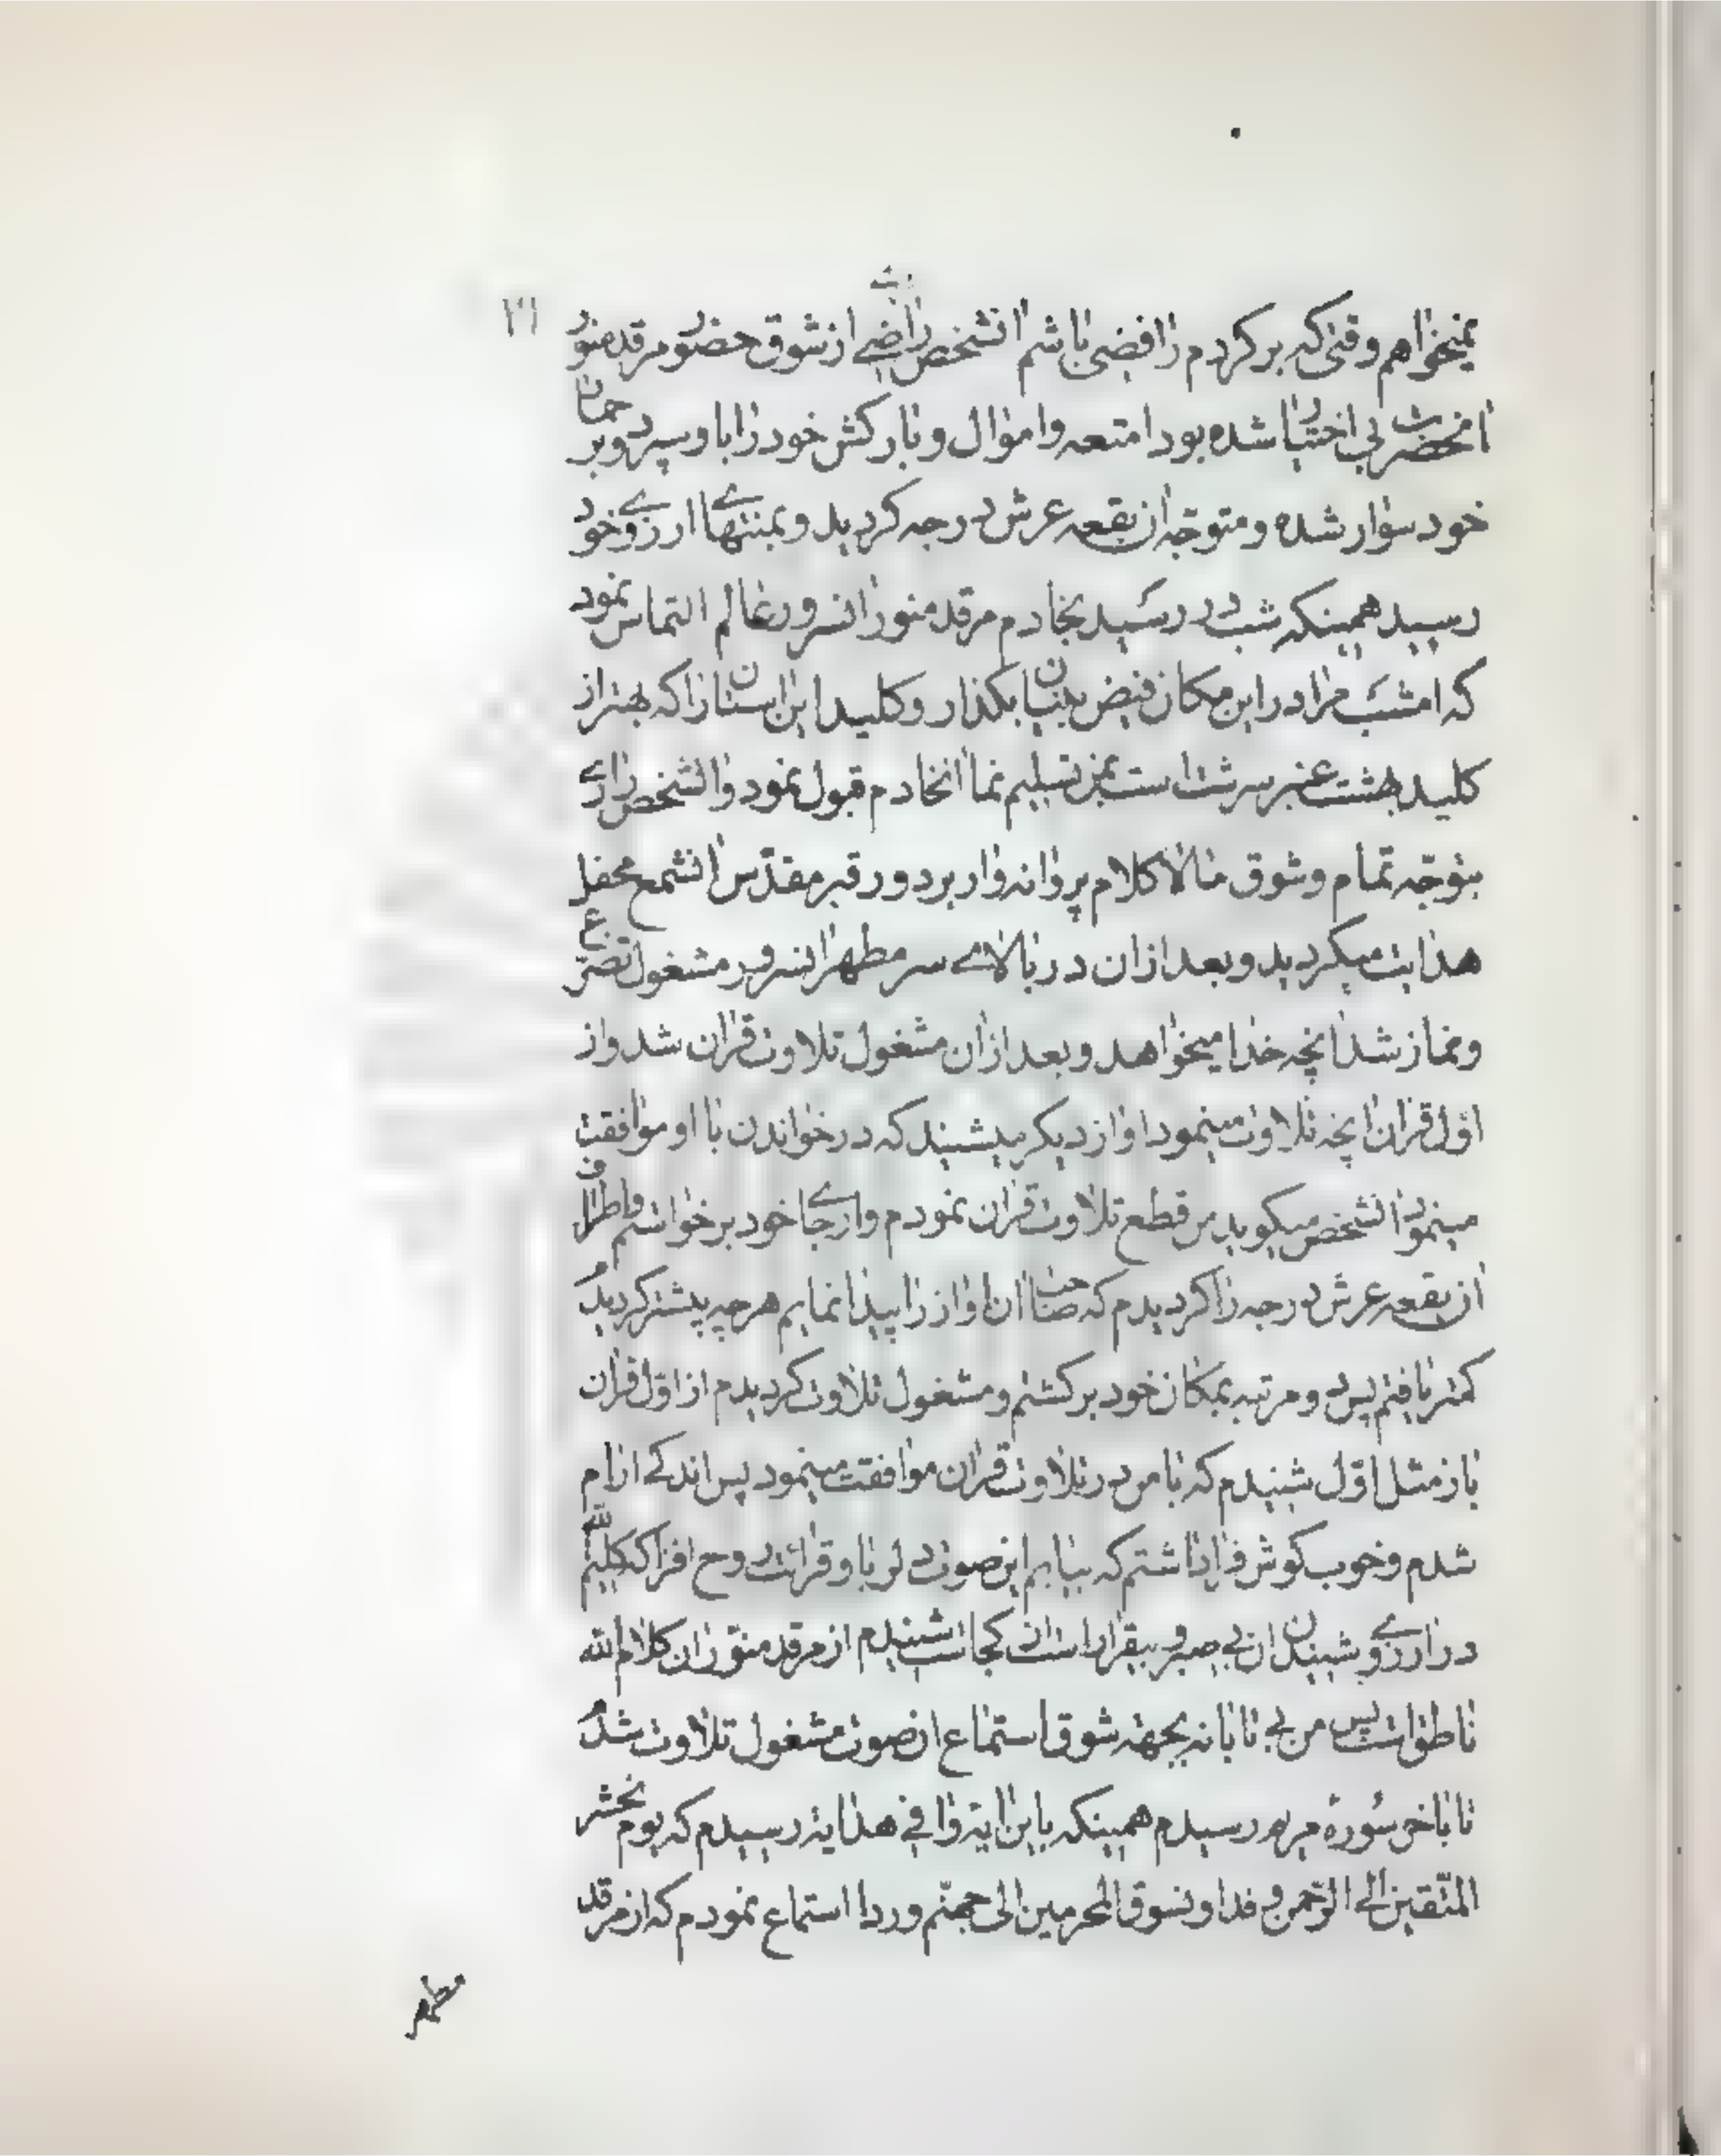 ۲۱
نمیخواهم وقتی که برکردم رافضی باشم انشخص راضی از شوق حضور مرقد منور
انحضرت بی اختیار شده بود امتعه و اموال و بارکش خود را باو سپرد و بر حمار
خود سوار شده و متوجه ان بقعه عرش درجه کردید و بمنتهای ارزوی خود
رسید همینکه شب در رسید بخادم مرقد منور انسرور عالم التماس نمود
که امشب مرا در این مکان فیض بنیان بکذار و کلید این استان را که بهتر از
کلید بهشت عنبر سرشت است بمن تسلیم نما انخادم قبول نمود و انشخص رازی
بتوجه تمام و شوق مالا کلام پروانه وار بر دور قبر مقدس انشمع محفل
هدایت میکردید و بعد از ان در بالای سر مطهر انسرور مشغول تضرع
و نماز شد انچه خدا میخواهد و بعد از ان مشغول تلاوت قران شد و از
اول قران انچه تلاوت مینمود اواز دیکر میشنید که در خواندن با او موافقت
مینمود انشخص میکوید من قطع تلاوت قران نمودم و از جای خود برخواستم و اطراف
ان بقعه عرش درجه را کردیدم که صاحب ان اواز را پیدا نمایم هر چه بیشتر کردیدم
کمتر یافتم پس دو مرتبه بمکان خود برکشتم و مشغول تلاوت کردیدم از اول قران
باز مثل اول شنیدم که با من در تلاوت قران موافقت مینمود پس اندکی ارام
شدم و خوب کوش فرا داشتم که بیابم این صوت دلربا و قرائت روح افزا که کلیم الله
در ارزوی شنیدن ان بی صبر و بیقرار است از کجاست شنیدم از مرقد منور ان کلام الله
ناطق است پس من بی تابانه بجهة شوق استماع ان صوت مشغول تلاوت شدم
تا باخر سوره مریم رسیدم همینکه باین ایه وافی هدایه رسیدم که یوم نحشر
المتقین الی الرحمن وفدا و نسوق المجرمین الی جهنم وردا استماع نمودم که از مرقد
مطهر